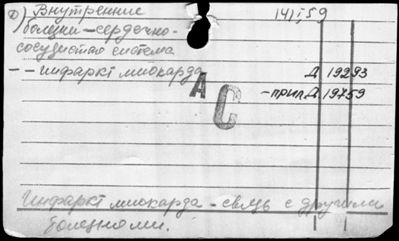 Ф) Внутренние 14/I-59
болезни – сердечно-
сосудистая система
Ф – инфаркт миокарда Д 19293
– прил. Д 19759
А
С
Инфаркт миокарда – связь с другими
болезнями.